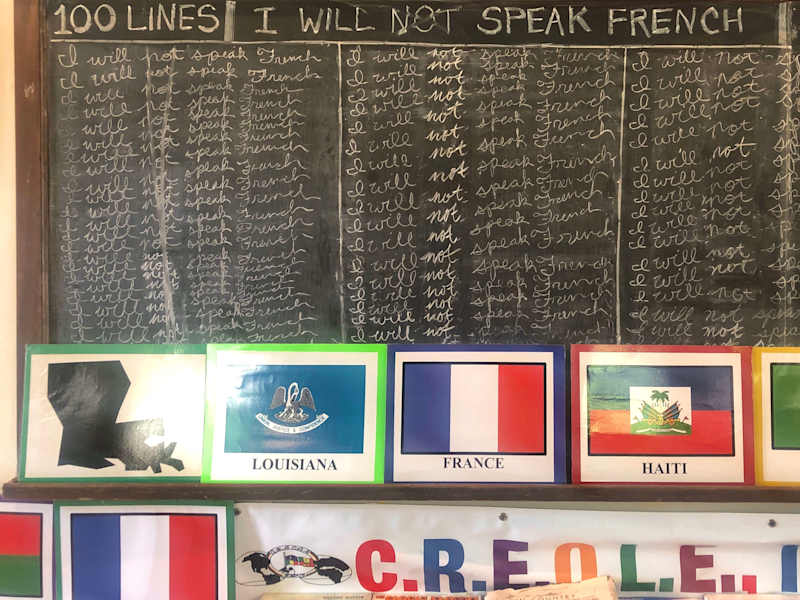 100 LINES I WILL NOT SPEAK FRENCH
I will not speak French
I will not speak French
I will not speak French
I will not speak French
I will not speak French
I will not speak French
I will not speak French
I will not speak French
I will not speak French
I will not speak French
I will not speak French
I will not speak French
I will not speak French
I will not speak French
I will not speak French
I will not speak French
I will not speak French
I will not speak French
I will not speak French
I will not speak French
I will not speak French
I will not speak French
I will not speak French
I will not speak French
I will not speak French
I will not speak French
I will not speak French
I will not speak French
I will not speak French
I will not speak French
I will not speak French
I will not speak French
I will not speak French
I will not speak French
I will not speak French
I will not speak French
I will not speak French
I will not speak French
I will not speak French
I will not
I will not
I will not
I will not
I will not
I will not
I will not
I will not
I will not
I will not
I will not
I will not
I will not
I will not speak
I will not
LOUISIANA
FRANCE
HAITI
C.R.E.O.L.E.,